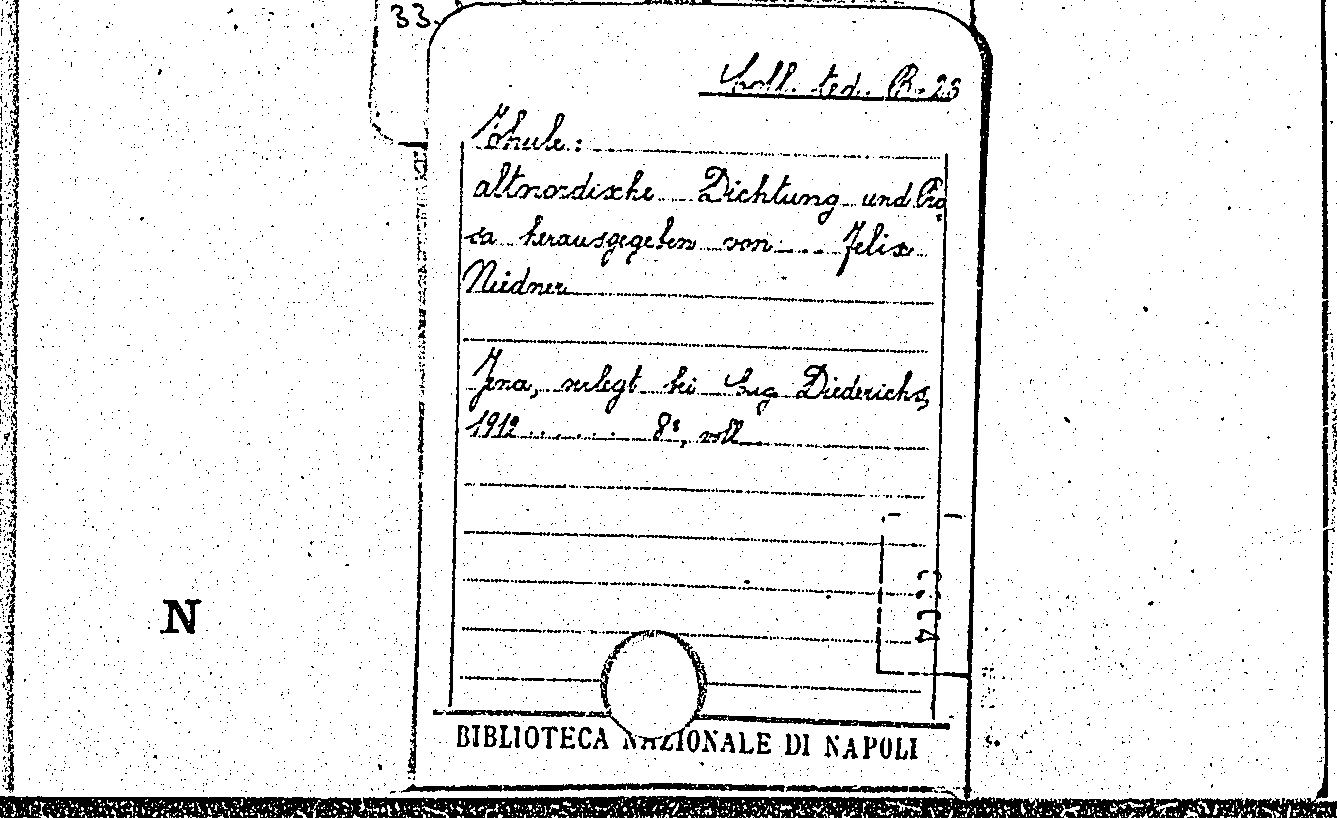 33.
Coll. ted. B. 23
Thule:
altnordische Dichtung und Pro
sa herausgegeben von Felix
Niedner
Jena, verlegt bei Eug Diederichs,
1912 ........ 8°, voll
N
BIBLIOTECA NAZIONALE DI NAPOLI